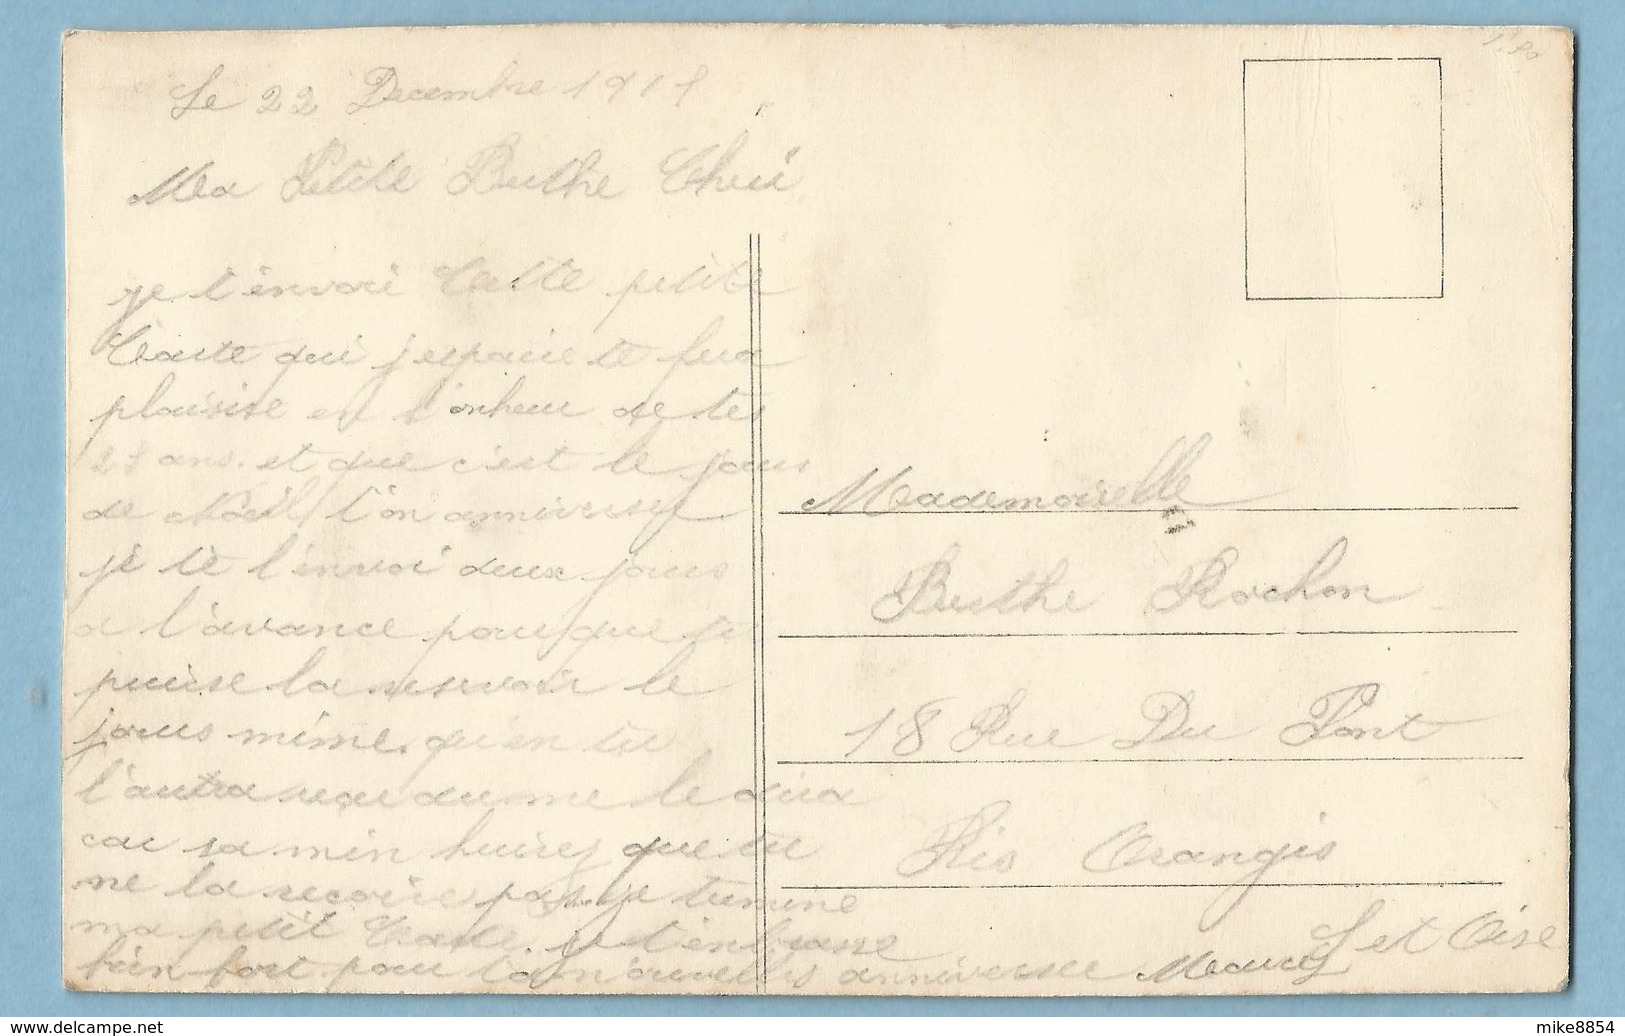 Le 22 Decembre 191
Ma Petite Berthe Cheri
je t'envoi Cette petite
Carte qui j'espaire te fera
plaisire en l'onheur de tes
ans. et que c'est le jour
de Noël l'on anniversey
je te l'envoi deux jours
a l'avance pour que tu
puise la resevoir le
jours même. qu'en tu
l'autra reçu du me le dira
car sa m'en huirez que tu
ne la reçoire pas. je termine
ma petit Carte. je t'enbrasse
bien fort pour ta nouvelles anniversere Maurey
Mademoiselle
Berthe Rochon
18 Rue Du Pont
Ris Orangis
S et Oise
mike8854